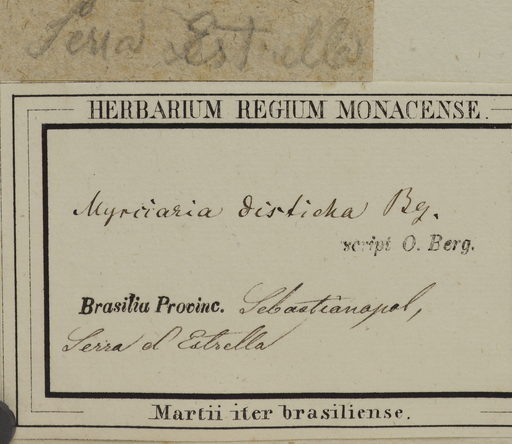 Serra Estrella
HERBARIUM REGIUM MONACENSE.
Myrciaria disticha Bg.
script O. Berg.
Brasilia Provinc. Sebastianopol,
Serra d'Estrella
Martii iter brasiliense.